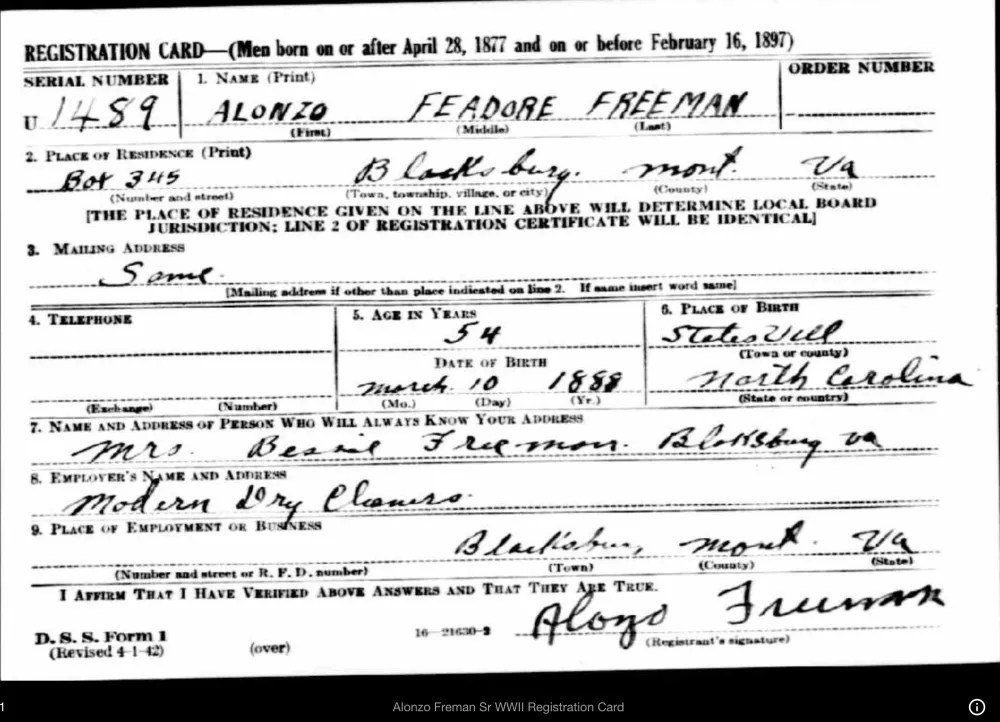 REGISTRATION CARD—(Men born on or after April 28, 1877 and on or before February 16, 1897)
SERIAL NUMBER 1. NAME (Print) ORDER NUMBER
U 1489 ALONZO FEADORE FREEMAN
(First) (Middle) (Last)
2. PLACE OF RESIDENCE (Print)
Box 345 Blacksburg. mont. Va
(Number and street) (Town, township, village, or city) (County) (State)
[THE PLACE OF RESIDENCE GIVEN ON THE LINE ABOVE WILL DETERMINE LOCAL BOARD
JURISDICTION; LINE 2 OF REGISTRATION CERTIFICATE WILL BE IDENTICAL]
3. MAILING ADDRESS
Same.
[Mailing address if other than place indicated on line 2. If same insert word same]
4. TELEPHONE 5. AGE IN YEARS 6. PLACE OF BIRTH
54 StatesVill
DATE OF BIRTH (Town or county)
march 10 1888 North Carolina
(Exchange) (Number) (Mo.) (Day) (Yr.) (State or country)
7. NAME AND ADDRESS OF PERSON WHO WILL ALWAYS KNOW YOUR ADDRESS
mrs. Bessie Freeman. Blaksburg va
8. EMPLOYER'S NAME AND ADDRESS
Modern Dry Cleaners.
9. PLACE OF EMPLOYMENT OR BUSINESS
Blacksburg, mont. Va
(Number and street or R. F. D. number) (Town) (County) (State)
I AFFIRM THAT I HAVE VERIFIED ABOVE ANSWERS AND THAT THEY ARE TRUE.
D. S. S. Form 1
(Revised 4-1-42) (over) 16—21630-2 Alonzo Freeman
(Registrant's signature)
1 Alonzo Freman Sr WWII Registration Card